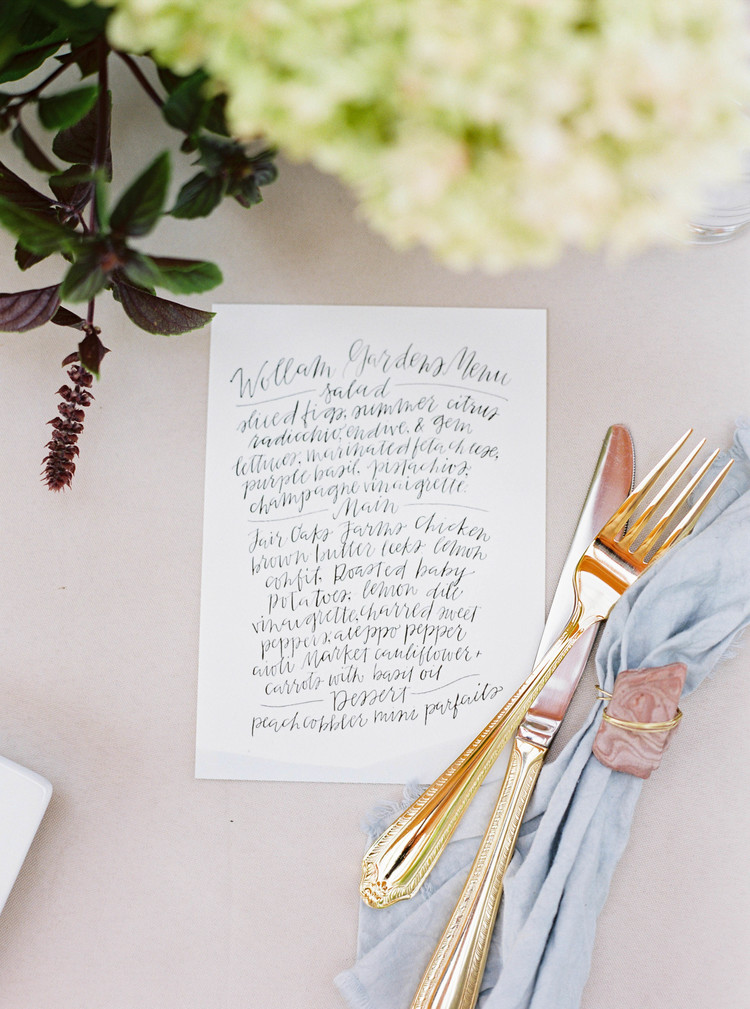 Wollam Gardens Menu
salad
sliced figs, summer citrus
radicchio, endive, & gem
lettuces, marinated feta cheese,
purple basil, pistachios,
champagne vinaigrette.
Main
Fair Oaks Farms Chicken
brown butter leeks lemon
confit, Roasted baby
Potatoes, lemon dill
vinaigrette, charred sweet
peppers, aleppo pepper
aioli Market cauliflower +
carrots with basil oil
Dessert
peach cobbler mini parfaits